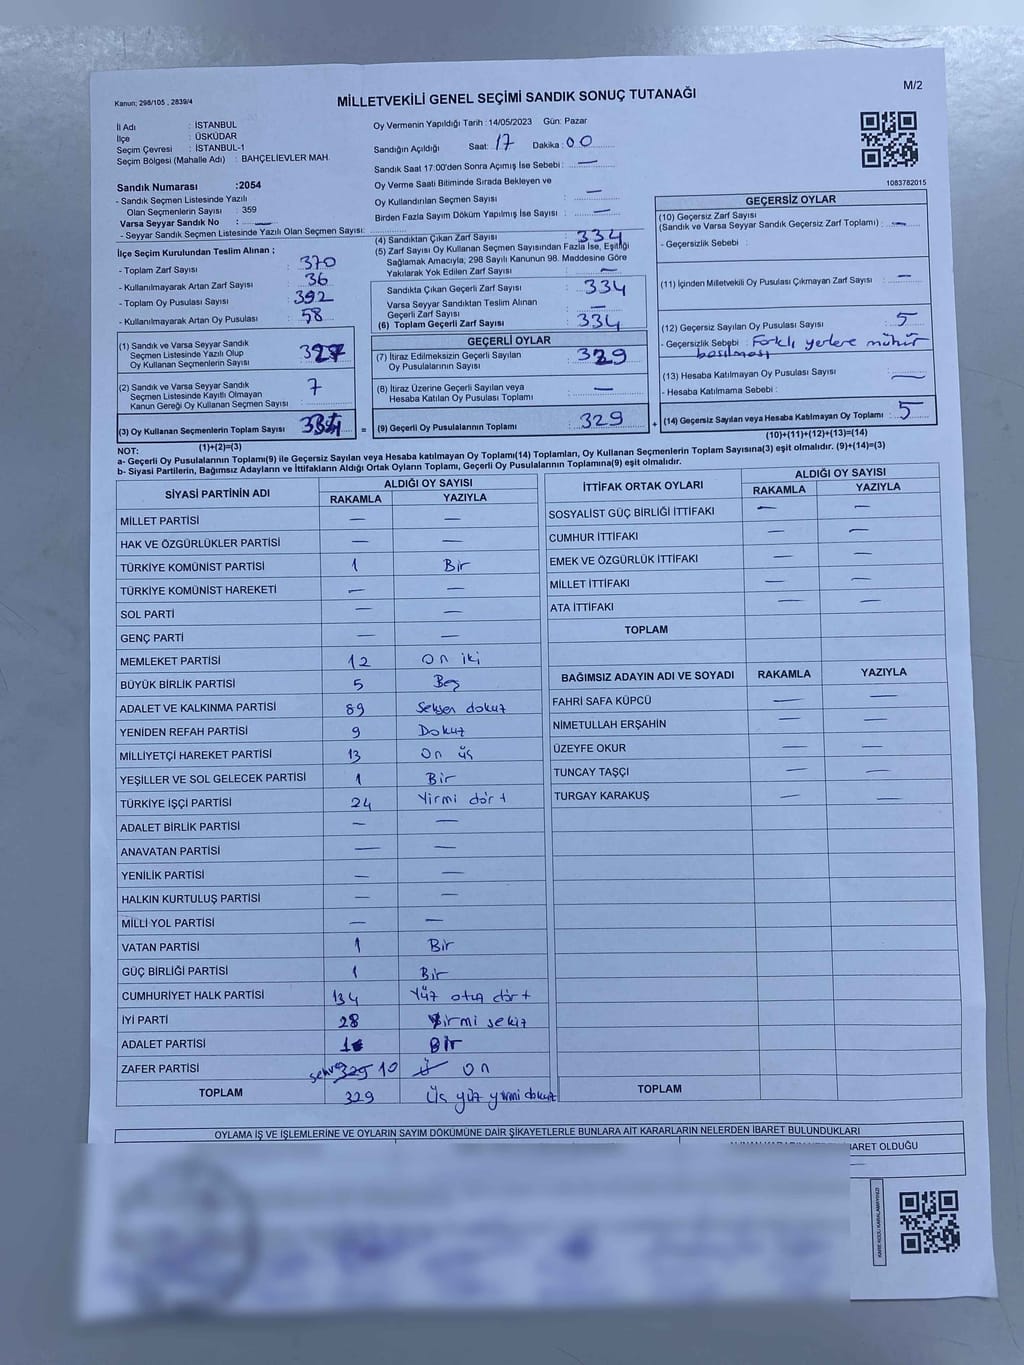 Kanun; 298/105 , 2839/4
MİLLETVEKİLİ GENEL SEÇİMİ SANDIK SONUÇ TUTANAĞI
M/2
İl Adı : İSTANBUL
İlçe : ÜSKÜDAR
Seçim Çevresi : İSTANBUL-1
Seçim Bölgesi (Mahalle Adı) : BAHÇELİEVLER MAH.
Oy Vermenin Yapıldığı Tarih : 14/05/2023 Gün: Pazar
Sandığın Açıldığı Saat: 17 Dakika : 00
Sandık Saat 17:00'den Sonra Açımış İse Sebebi : —
Oy Verme Saati Bitiminde Sırada Bekleyen ve
Oy Kullandırılan Seçmen Sayısı : —
Birden Fazla Sayım Döküm Yapılmış İse Sayısı : —
1083782015
Sandık Numarası :2054
- Sandık Seçmen Listesinde Yazılı
Olan Seçmenlerin Sayısı : 359
Varsa Seyyar Sandık No : —
- Seyyar Sandık Seçmen Listesinde Yazılı Olan Seçmen Sayısı:
İlçe Seçim Kurulundan Teslim Alınan ;
- Toplam Zarf Sayısı : 370
- Kullanılmayarak Artan Zarf Sayısı : 36
- Toplam Oy Pusulası Sayısı : 392
- Kullanılmayarak Artan Oy Pusulası : 58
(1) Sandık ve Varsa Seyyar Sandık
Seçmen Listesinde Yazılı Olup
Oy Kullanan Seçmenlerin Sayısı : 327
(2) Sandık ve Varsa Seyyar Sandık
Seçmen Listesinde Kayıtlı Olmayan
Kanun Gereği Oy Kullanan Seçmen Sayısı : 7
(3) Oy Kullanan Seçmenlerin Toplam Sayısı : 334
(1)+(2)=(3)
(4) Sandıktan Çıkan Zarf Sayısı : 334
(5) Zarf Sayısı Oy Kullanan Seçmen Sayısından Fazla İse, Eşitliği
Sağlamak Amacıyla; 298 Sayılı Kanunun 98. Maddesine Göre
Yakılarak Yok Edilen Zarf Sayısı : —
Sandıkta Çıkan Geçerli Zarf Sayısı : 334
Varsa Seyyar Sandıktan Teslim Alınan
Geçerli Zarf Sayısı : —
(6) Toplam Geçerli Zarf Sayısı : 334
GEÇERLİ OYLAR
(7) İtiraz Edilmeksizin Geçerli Sayılan
Oy Pusulalarının Sayısı : 329
(8) İtiraz Üzerine Geçerli Sayılan veya
Hesaba Katılan Oy Pusulası Toplamı : —
= (9) Geçerli Oy Pusulalarının Toplamı : 329
GEÇERSİZ OYLAR
(10) Geçersiz Zarf Sayısı
(Sandık ve Varsa Seyyar Sandık Geçersiz Zarf Toplamı) : —
- Geçersizlik Sebebi :
(11) İçinden Milletvekili Oy Pusulası Çıkmayan Zarf Sayısı : —
(12) Geçersiz Sayılan Oy Pusulası Sayısı : 5
- Geçersizlik Sebebi : Farklı yerlere mühür
basılması
(13) Hesaba Katılmayan Oy Pusulası Sayısı : —
- Hesaba Katılmama Sebebi :
+ (14) Geçersiz Sayılan veya Hesaba Katılmayan Oy Toplamı : 5
(10)+(11)+(12)+(13)=(14)
NOT:
a- Geçerli Oy Pusulalarının Toplamı(9) ile Geçersiz Sayılan veya Hesaba katılmayan Oy Toplamı(14) Toplamları, Oy Kullanan Seçmenlerin Toplam Sayısına(3) eşit olmalıdır. (9)+(14)=(3)
b- Siyasi Partilerin, Bağımsız Adayların ve İttifakların Aldığı Ortak Oyların Toplamı, Geçerli Oy Pusulalarının Toplamına(9) eşit olmalıdır.
SİYASİ PARTİNİN ADI ALDIĞI OY SAYISI
RAKAMLA YAZIYLA
MİLLET PARTİSİ — —
HAK VE ÖZGÜRLÜKLER PARTİSİ — —
TÜRKİYE KOMÜNİST PARTİSİ 1 Bir
TÜRKİYE KOMÜNİST HAREKETİ — —
SOL PARTİ — —
GENÇ PARTİ — —
MEMLEKET PARTİSİ 12 on iki
BÜYÜK BİRLİK PARTİSİ 5 Beş
ADALET VE KALKINMA PARTİSİ 89 Seksen dokuz
YENİDEN REFAH PARTİSİ 9 Dokuz
MİLLİYETÇİ HAREKET PARTİSİ 13 On üç
YEŞİLLER VE SOL GELECEK PARTİSİ 1 Bir
TÜRKİYE İŞÇİ PARTİSİ 24 Yirmi dört
ADALET BİRLİK PARTİSİ — —
ANAVATAN PARTİSİ — —
YENİLİK PARTİSİ — —
HALKIN KURTULUŞ PARTİSİ — —
MİLLİ YOL PARTİSİ — —
VATAN PARTİSİ 1 Bir
GÜÇ BİRLİĞİ PARTİSİ 1 Bir
CUMHURİYET HALK PARTİSİ 134 Yüz otuz dört
İYİ PARTİ 28 Yirmi sekiz
ADALET PARTİSİ 1 Bir
ZAFER PARTİSİ 10 on
TOPLAM 329 Üç yüz yirmi dokuz
İTTİFAK ORTAK OYLARI ALDIĞI OY SAYISI
RAKAMLA YAZIYLA
SOSYALİST GÜÇ BİRLİĞİ İTTİFAKI — —
CUMHUR İTTİFAKI — —
EMEK VE ÖZGÜRLÜK İTTİFAKI — —
MİLLET İTTİFAKI — —
ATA İTTİFAKI — —
TOPLAM
BAĞIMSIZ ADAYIN ADI VE SOYADI RAKAMLA YAZIYLA
FAHRİ SAFA KÜPCÜ — —
NİMETULLAH ERŞAHİN — —
ÜZEYFE OKUR — —
TUNCAY TAŞÇI — —
TURGAY KARAKUŞ — —
TOPLAM
OYLAMA İŞ VE İŞLEMLERİNE VE OYLARIN SAYIM DÖKÜMÜNE DAİR ŞİKAYETLERLE BUNLARA AİT KARARLARIN NELERDEN İBARET BULUNDUKLARI
İBARET OLDUĞU
—
KARE KODU KARALAMAYINIZ!